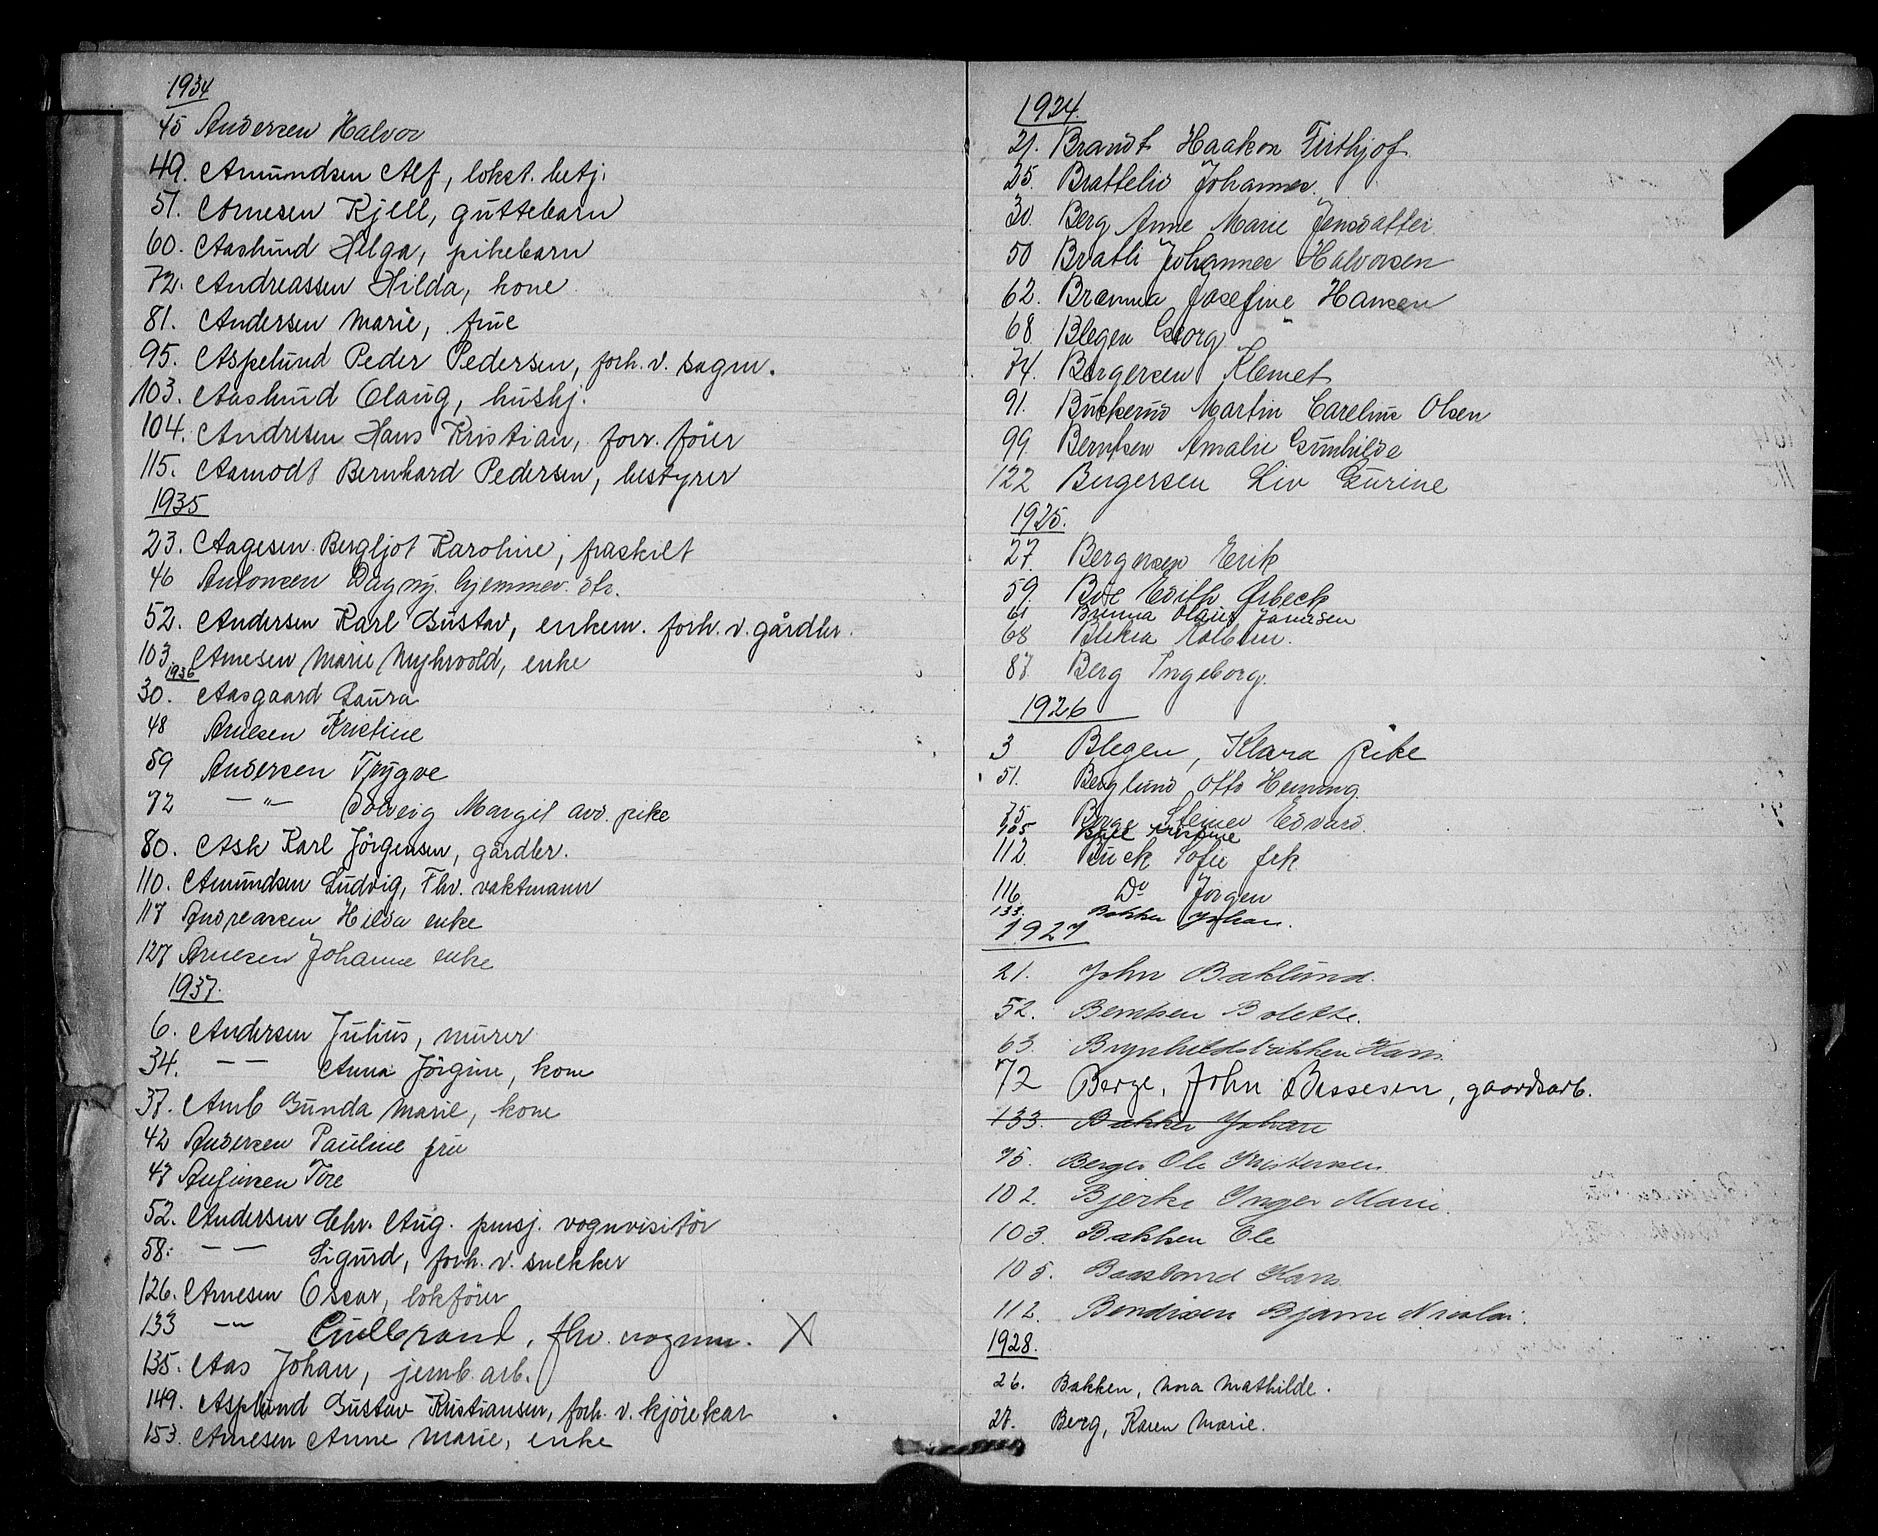 1934
45 Andersen Halvor
49. Amundsen Alf, lokst. betj.
51. Arnesen Kjell, guttebarn
60. Aaslund Helga, pikebarn
72. Andreassen Hilda, kone
81. Andersen Marie, frue
95. Aspelund Peder Pedersen, forh. v. sagm.
103. Aaslund Olaug, hushj.
104. Andresen Hans Kristian, forv. föier
115. Aamodt Bernhard Pedersen, bestyrer
1935
23. Aagesen Bergljot Karoline, fraskilt
46 Antonsen Dagny. hjemmev. dtr.
52. Andersen Karl Gustav, enkem. forh. v. gårdbr.
103. Arnesen Marie Myhrvold, enke
1936
30. Aasgaard Laura
48 Arnesen Kristine
59 Andersen Trygve
72 — " — Solveig Margit avd. pike
80. Ask Karl Jörgensen, gårdbr.
110. Amundsen Ludvig, Fhv. vaktmann
117 Andreassen Hilda enke
127 Arnesen Johanne enke
1937.
6. Andersen Julius, murer
34. — — Anna Jörgine, kone
37. Amb Gunda Marie, kone
42 Andersen Pauline frue
47 Anfinsen Tore
52. Andersen Chr. Aug. pensj. vognvisitör
58. — — Sigurd, forh. v. snekker
126. Arnesen Oscar, lokförer
133 — " — Gulbrand, fhv. vognm. X
135. Aas Johan, jernb. arb.
149. Asplund Gustav Kristiansen, forh. v. kjörekar
153. Arnesen Anne Marie, enke
1924.
21. Brandt Haakon Firthjof
25. Brattelid Johannes.
30. Berg Anne Marie Jensdatter.
50 Bratli Johannes Halvorsen
62. Brenna Josefine Hansen
68 Blegen Georg
74. Borgersen Klemet
91. Buskerud Martin Careline Olsen
99. Berntsen Amalie Gunhilde
122 Birgersen Liv Gurine
1925.
27. Bergersen Erik
59. Boe Edith Ørbeck
61 Brenna Olaus Jonassen
68 Blekra Kolbein.
87 Berg Ingeborg.
1926
3 Blegen, Klara pike
51. Berglund Otto Henning.
75 Borge Steinar Edvard.
105 Kristine
112. Buck Sofie frk.
116 Do Jørgen
133. Bakken Johan.
1927
21. John Baklund.
52. Berntsen Bolette.
63. Brynhildsbakken Hans
72 Berge, John Bessesen, gaardsarb.
133. Bakken Johan
75. Berger Ole Kristensen
102. Bjerke Inger Marie.
103. Bakken Ole
105. Hans
112. Bendixen Bjarne Nicolai.
1928.
26. Bakken, Nora Mathilde.
27. Berg, Karen Marie.